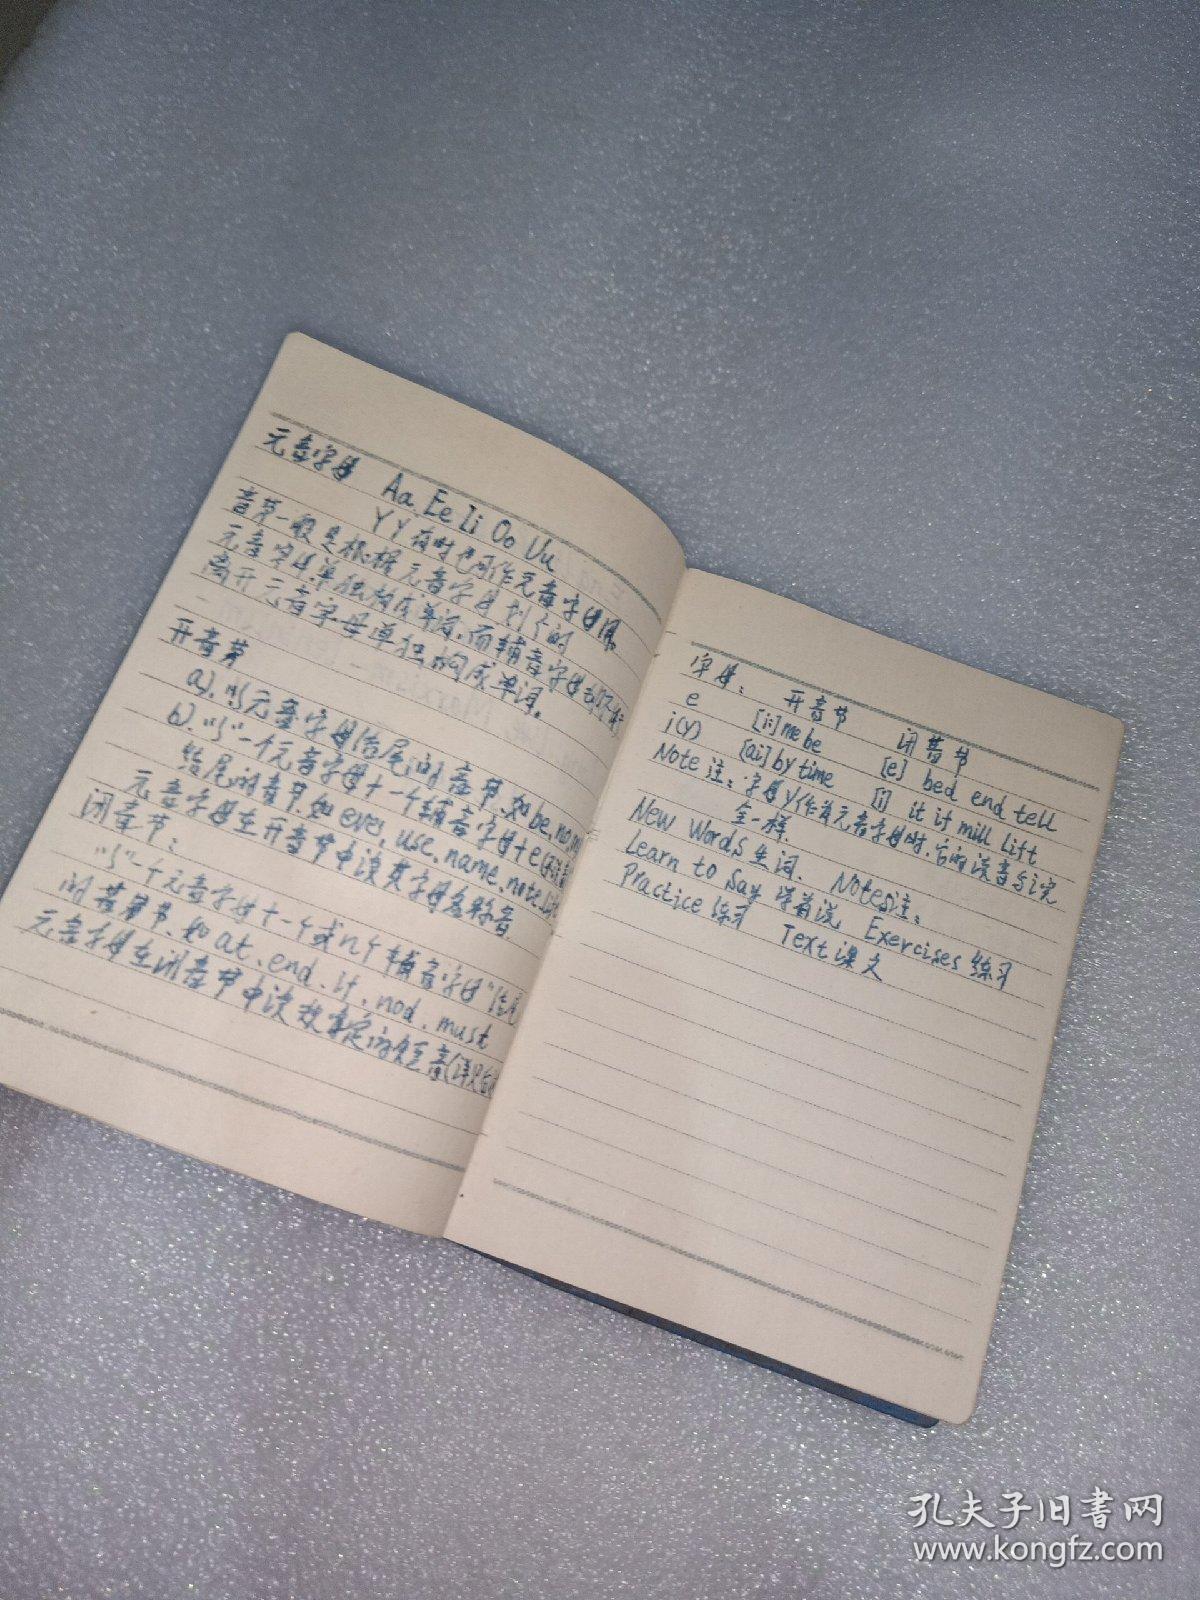 元音字母 Aa, Ee Ii Oo Uu
YY有时也可作元音字母用。
音节一般是根据元音字母划分的
元音字母单独构成单词,而辅音字母却不能
离开元音字母单独构成单词。
开音节
a).以元音字母结尾的音节.如be,no
b).以一个元音字母+一个辅音字母+e
结尾的音节.如eve, use, name, note,
元音字母在开音节中读其字母名称音.
闭音节:
以一个元音字母+一个或n个辅音字母"结尾
的节.如at、end、if、nod、must
元音字母在闭音节中读的短音
字母: 开音节 闭音节
e [i:] me be [e] bed end tell
i(Y) [ai] by time [i] it if mill lift
Note注:字母y作为元音字母时,它的读音与i完
全一样.
New Words生词. Notes注:
Learn to Say 学着说 Exercises练习
Practice练习 Text课文
孔夫子旧书网
www.kongfz.com